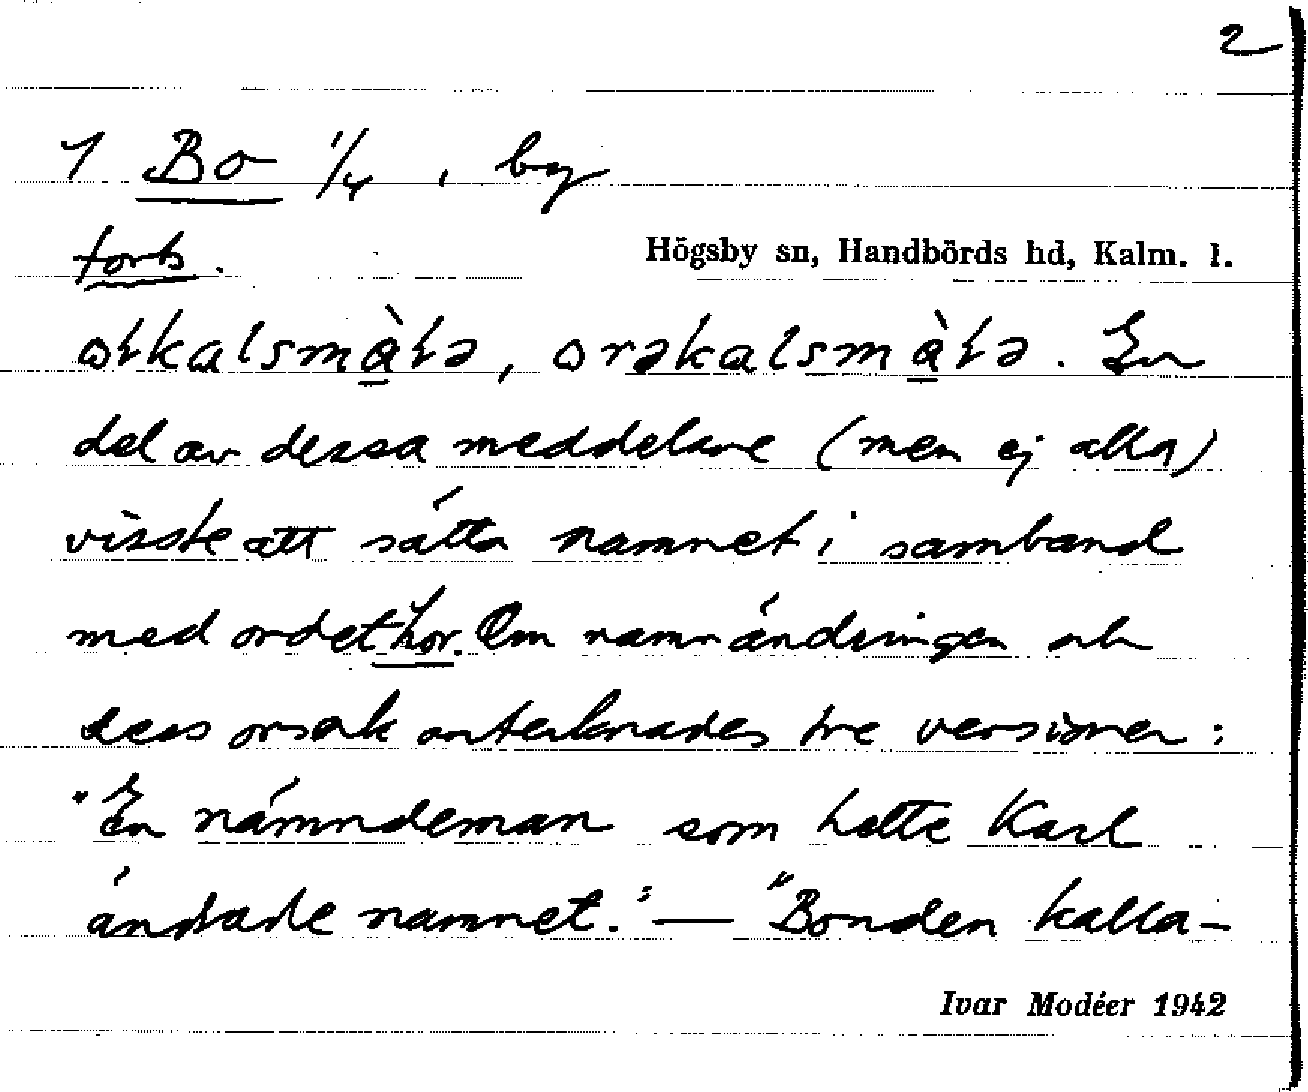 2
1 Bo 1/4, by
forts.
Högsby sn, Handbörds hd, Kalm. l.
otkalsmàtə, orəkalsmàtə. En
del av dessa meddelare (men ej alla)
visste att sätta namnet i samband
med ordet hor. Om namnändringen och
dess orsak antecknades tre versioner:
"En nämndeman som hette Karl
ändrade namnet." — "Bonden kalla-
Ivar Modéer 1942